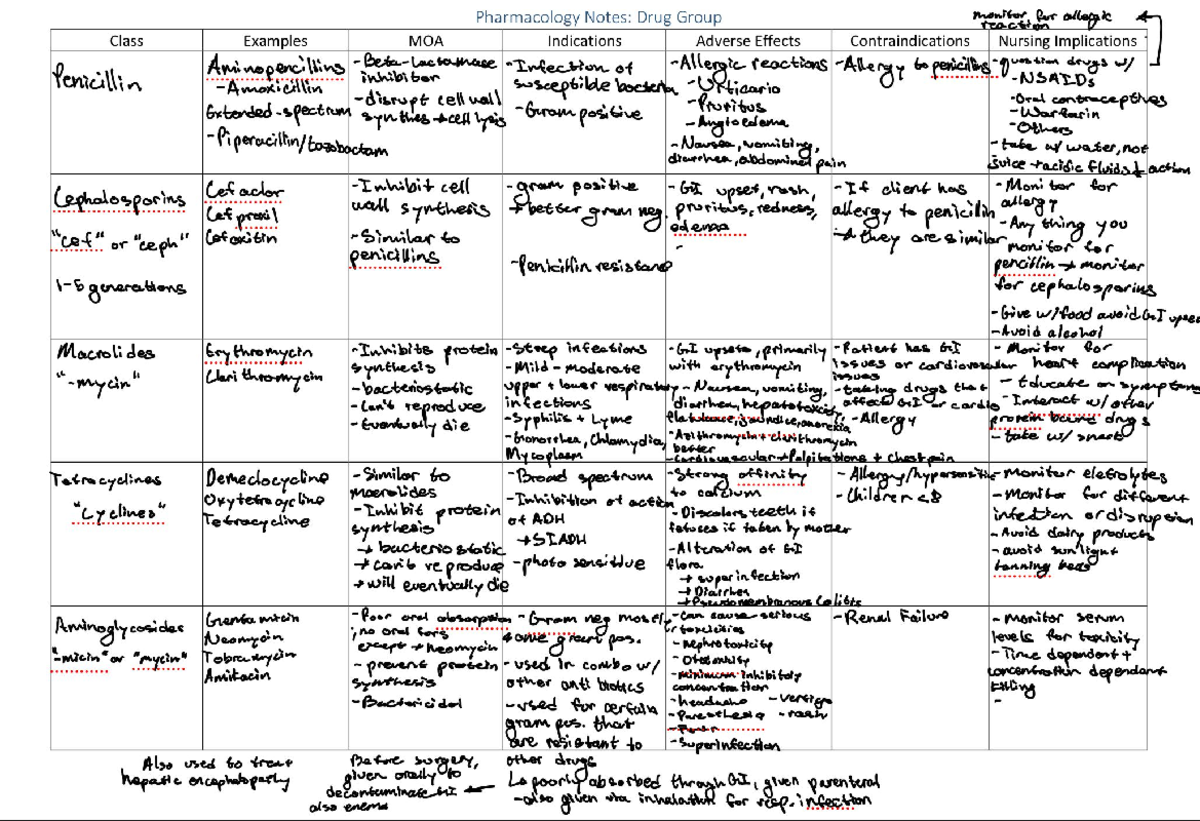 Pharmacology Notes: Drug Group
monitor for allergic
reaction
Class
Examples
MOA
Indications
Adverse Effects
Contraindications
Nursing Implications
Penicillin
Aminopencillins
-Amoxicillin
Extended-spectrum
-Piperacillin/tazobactam
-Beta-lactamase
inhibitor
-disrupt cell wall
synthes → cell lysis
-Infection of
susceptible bacteria
-Gram positive
-Allergic reactions
-Urticaria
-Pruritus
-Angioedema
-Nausea, vomiting,
diarrhea, abdominal pain
-Allergy to penicillins
-question drugs w/
-NSAIDs
-Oral contraceptives
-Warfarin
-Others
-take w/ water, not
juice + acidic fluids ↓ action
Cephalosporins
"Cef" or "ceph"
1-5 generations
Cefaclor
Cefprozil
Cefoxitin
-Inhibit cell
wall synthesis
-Similar to
penicillins
-gram positive
+ better gram neg.
-Penicillin resistance
-GI upset, rash,
pruritus, redness,
edema
-
-If client has
allergy to penicillin
→ they are similar
-Monitor for
allergy
-Any thing you
monitor for
pencillin → monitor
for cephalosporins
-Give w/food avoid GI upset
-Avoid alcohol
Macrolides
"-mycin"
Erythromycin
Clarithromycin
-Inhibits protein
synthesis
-bacteriostatic
-Can't reproduce
-Eventually die
-Strep infections
-Mild-moderate
upper + lower respiratory
infections
-Syphilis + Lyme
-Gonorrhea, Chlamydia,
Mycoplasm
-GI upsets, primarily
with erythromycin
-Nausea, vomiting,
diarrhea, hepatotoxicity,
flatulence, jaundice, anorexia
-Azithromycin + clarithromycin
better
-Cardiovascular → Palpitations + Chest pain
-Patient has GI
issues or cardiovascular
issues
-taking drugs that
affect GI or cardio
-Allergy
-Monitor for
heart complication
-Educate on symptoms
-Interact w/ other
protein bound drugs
-take w/ snack
Tetracyclines
"Cyclines"
Demeclocycline
Oxytetracycline
Tetracycline
-Similar to
macrolides
-Inhibit protein
synthesis
→ bacteriostatic
→ can't reproduce
→ will eventually die
-Broad spectrum
-Inhibition of action
of ADH
→ SIADH
-photosensitive
-Strong affinity
to calcium
-Discolors teeth if
fetuses if taken by mother
-Alteration of GI
flora
→ superinfection
→ Diarrhea
→ Pseudomembranous Colitis
-Allergy/hypersensitive
-Children <8
-Monitor eletrolytes
-Monitor for different
infection or disruption
-Avoid dairy products
-avoid sunlight
tanning beds
Aminoglycosides
"-micin" or "mycin"
Gentamicin
Neomycin
Tobramycin
Amikacin
-Poor oral absorption
, no oral fors
except → Neomycin
-prevent protein
synthesis
-Bactericidal
-Gram neg mostly
some gram pos.
-used in combo w/
other antibiotics
-used for certain
gram pos. that
are resistant to
other drugs
-Can cause serious
toxicities
-Nephrotoxicity
-Ototoxicity
-minimum inhibitory
concentration
-headache -vertigo
-Paresthesia -rash
-Fever
-Superinfection
-Renal Failure
-Monitor serum
levels for toxicity
-Time dependent +
concentration dependent
killing
-
Also used to treat
hepatic encephalopathy
Before surgery,
given orally to
decontaminate GI ←
also enema
↳ poorly absorbed through GI, given parenteral
-also given via inhalation for resp. infection